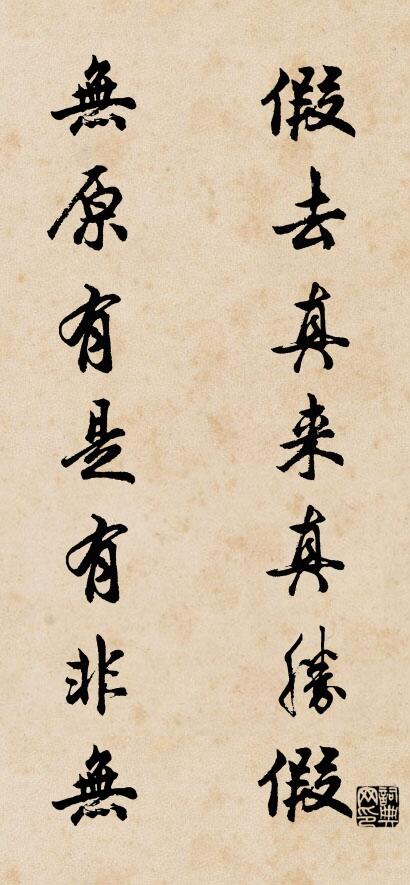 假去真来真勝假
無原有是有非無
詞典网印